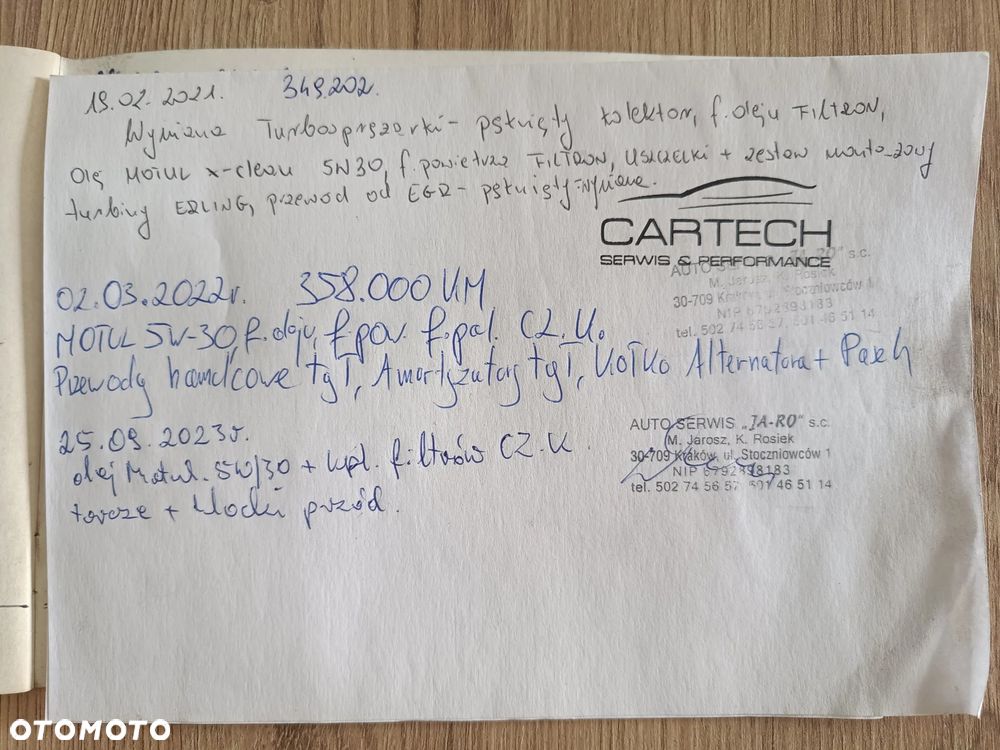 19.02.2021. 349.202.
Wymiana Turbosprężarki - pęknięty kolektor, f. oleju FILTRON,
Olej MOTUL x-clean 5W30, f. powietrza FILTRON, USZCZELKI + zestaw montażowy
turbiny ERLING, przewód od EGR - pęknięty - wymiana.
CARTECH
SERWIS & PERFORMANCE
AUTO SERWIS "JA-RO" s.c.
M. Jarosz, K. Rosiek
30-709 Kraków, ul. Stoczniowców 1
NIP 6792898183
tel. 502 74 56 57, 501 46 51 14
02.03.2022r. 358.000 KM
MOTUL 5W-30, f. oleju, f. pow. f. pal. CZ.K.
Przewody hamulcowe tył, Amortyzatory tył, Kółko Alternatora + Pasek
25.09.2023r.
olej Motul. 5W/30 + kpl. filtrów CZ.K.
tarcze + klocki przód.
AUTO SERWIS "JA-RO" s.c.
M. Jarosz, K. Rosiek
30-709 Kraków, ul. Stoczniowców 1
NIP 6792898183
tel. 502 74 56 57, 501 46 51 14
OTOMOTO